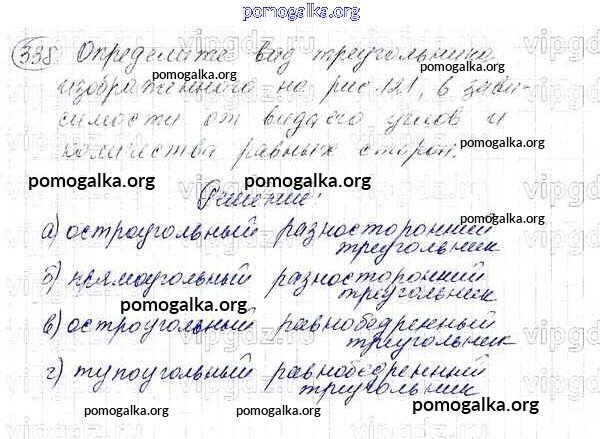 pomogalka.org
338 Определите вид треугольника,
изображенного на рис 121, в зави-
симости от вида его углов и
количества равных сторон.
Решение:
а) остроугольный разносторонний
треугольник
б) прямоугольный разносторонний
треугольник
в) остроугольный равнобедренный
треугольник
г) тупоугольный равнобедренний
треугольник
pomogalka.org
pomogalka.org
pomogalka.org
pomogalka.org
pomogalka.org
pomogalka.org
pomogalka.org
pomogalka.org
pomogalka.org
pomogalka.org
pomogalka.org
pomogalka.org